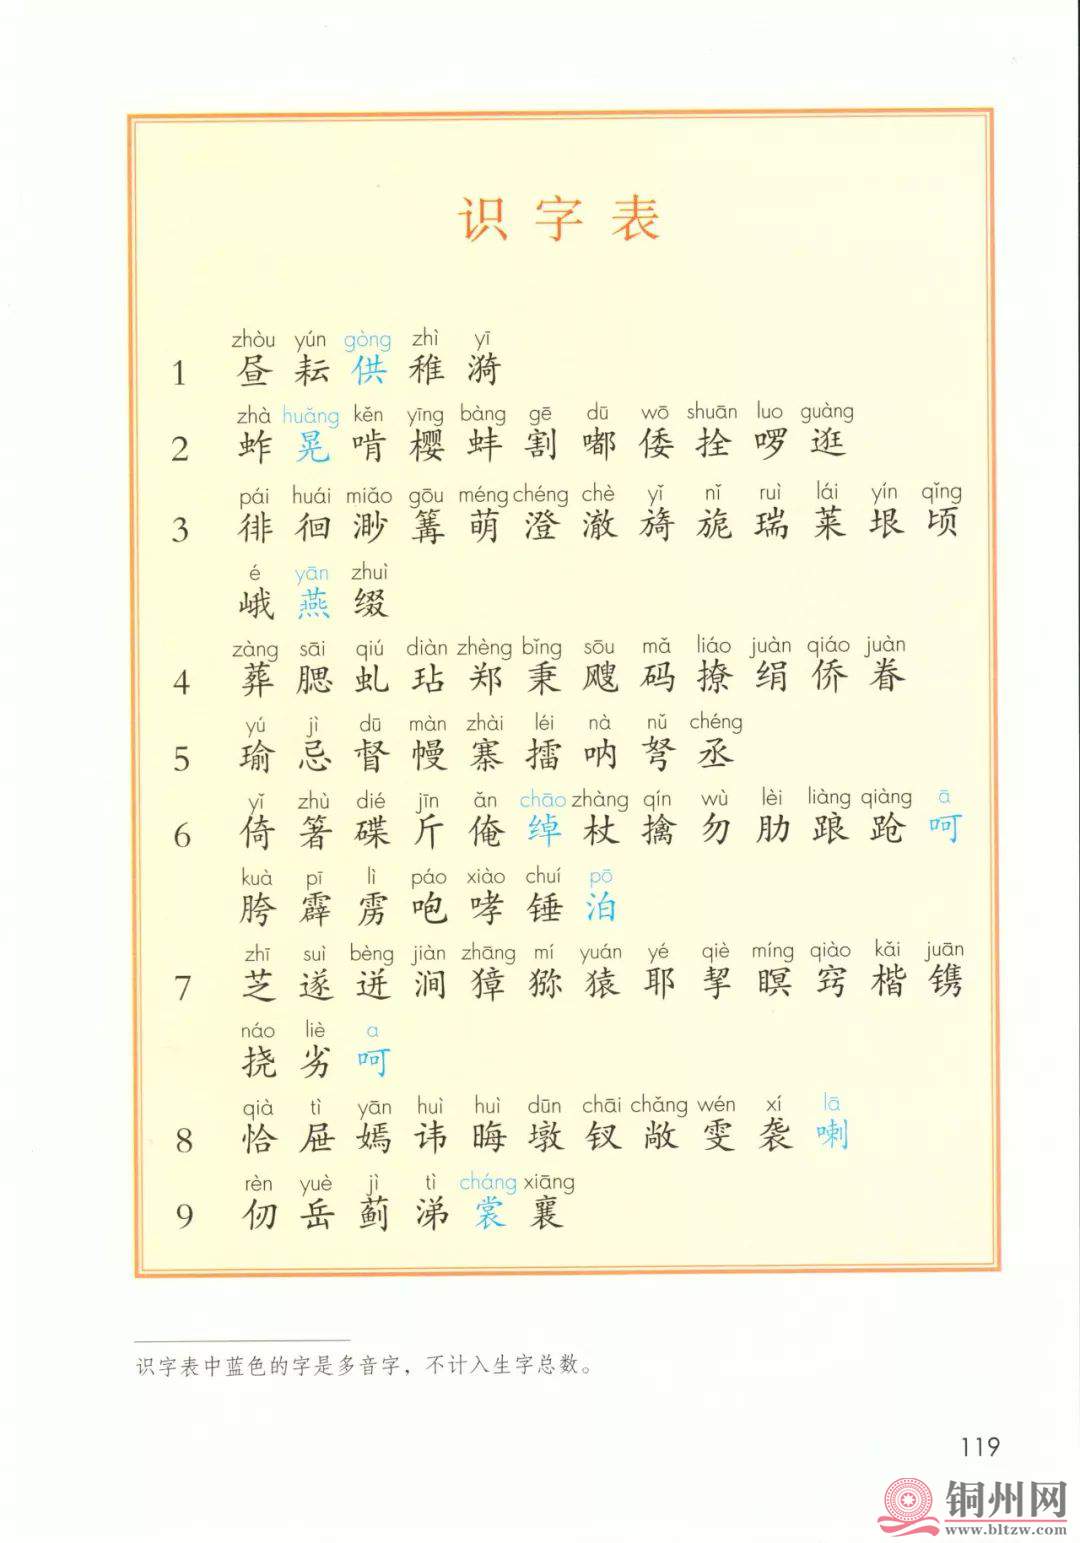 识字表
zhòu yún gòng zhì yī
1 昼 耘 供 稚 漪
zhà huǎng kěn yīng bàng gē dū wō shuān luo guàng
2 蚱 晃 啃 樱 蚌 割 嘟 倭 拴 啰 逛
pái huái miǎo gōu méng chéng chè yǐ nǐ ruì lái yín qǐng
3 徘 徊 渺 篝 萌 澄 澈 旖 旎 瑞 莱 垠 顷
é yān zhuì
峨 燕 缀
zàng sāi qiú diàn zhèng bǐng sōu mǎ liáo juàn qiáo juàn
4 葬 腮 虬 玷 郑 秉 飕 码 撩 绢 侨 眷
yú jì dū màn zhài léi nà nǔ chéng
5 瑜 忌 督 幔 寨 擂 呐 弩 丞
yǐ zhù dié jīn ǎn chāo zhàng qín wù lèi liàng qiàng ā
6 倚 箸 碟 斤 俺 绰 杖 擒 勿 肋 踉 跄 呵
kuà pī lì páo xiào chuí pō
胯 霹 雳 咆 哮 锤 泊
zhī suì bèng jiàn zhāng mí yuán yé qiè míng qiào kǎi juān
7 芝 遂 迸 涧 獐 猕 猿 耶 挈 瞑 窍 楷 镌
náo liè a
挠 劣 呵
qià tì yān huì huì dūn chāi chǎng wén xí lā
8 恰 屉 嫣 讳 晦 墩 钗 敞 雯 袭 喇
rèn yuè jì tì cháng xiāng
9 仞 岳 蓟 涕 裳 襄
识字表中蓝色的字是多音字，不计入生字总数。
119
铜州网
www.bltzw.com